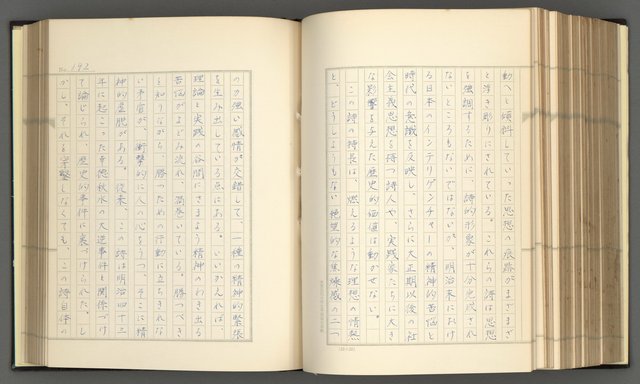 動へと傾斜していった思想の痕跡がまざまざ
と浮き彫りにされている。これらの詩は思想
を強調するために、詩的形象が十分完成され
ないところもないではないが、明治末におけ
る日本のインテリゲンチャーの精神的苦悩と
時代の意識を反映し、さらに大正期以後の社
会主義思想を持つ詩人や、実践家たちに大き
な影響を与えた歴史的価値は動かせない。
この詩の特長は、燃えるような理想の情熱
と、どうしようもない絶望的な焦燥感の二つ
No. 192
のか強い感情が交錯して、一種の精神的緊張
を生み出している点にある。いいかえれば、
理論と実践の谷間にさまよう精神のわき出る
苦悩がよどみ流れ、渦巻いている。勝つべき
を知りながら、勝つための行動に立ちきれな
い矛盾が、衝撃的に人の心をうつ。そこに精
神的基肥がある。従来、この詩は明治四十三
年に起こった幸徳秋水の大逆事件と関係づけ
て論じられ、歴史的事件に裏づけられた。し
かし、それを穿鑿しなくても、この詩自体の